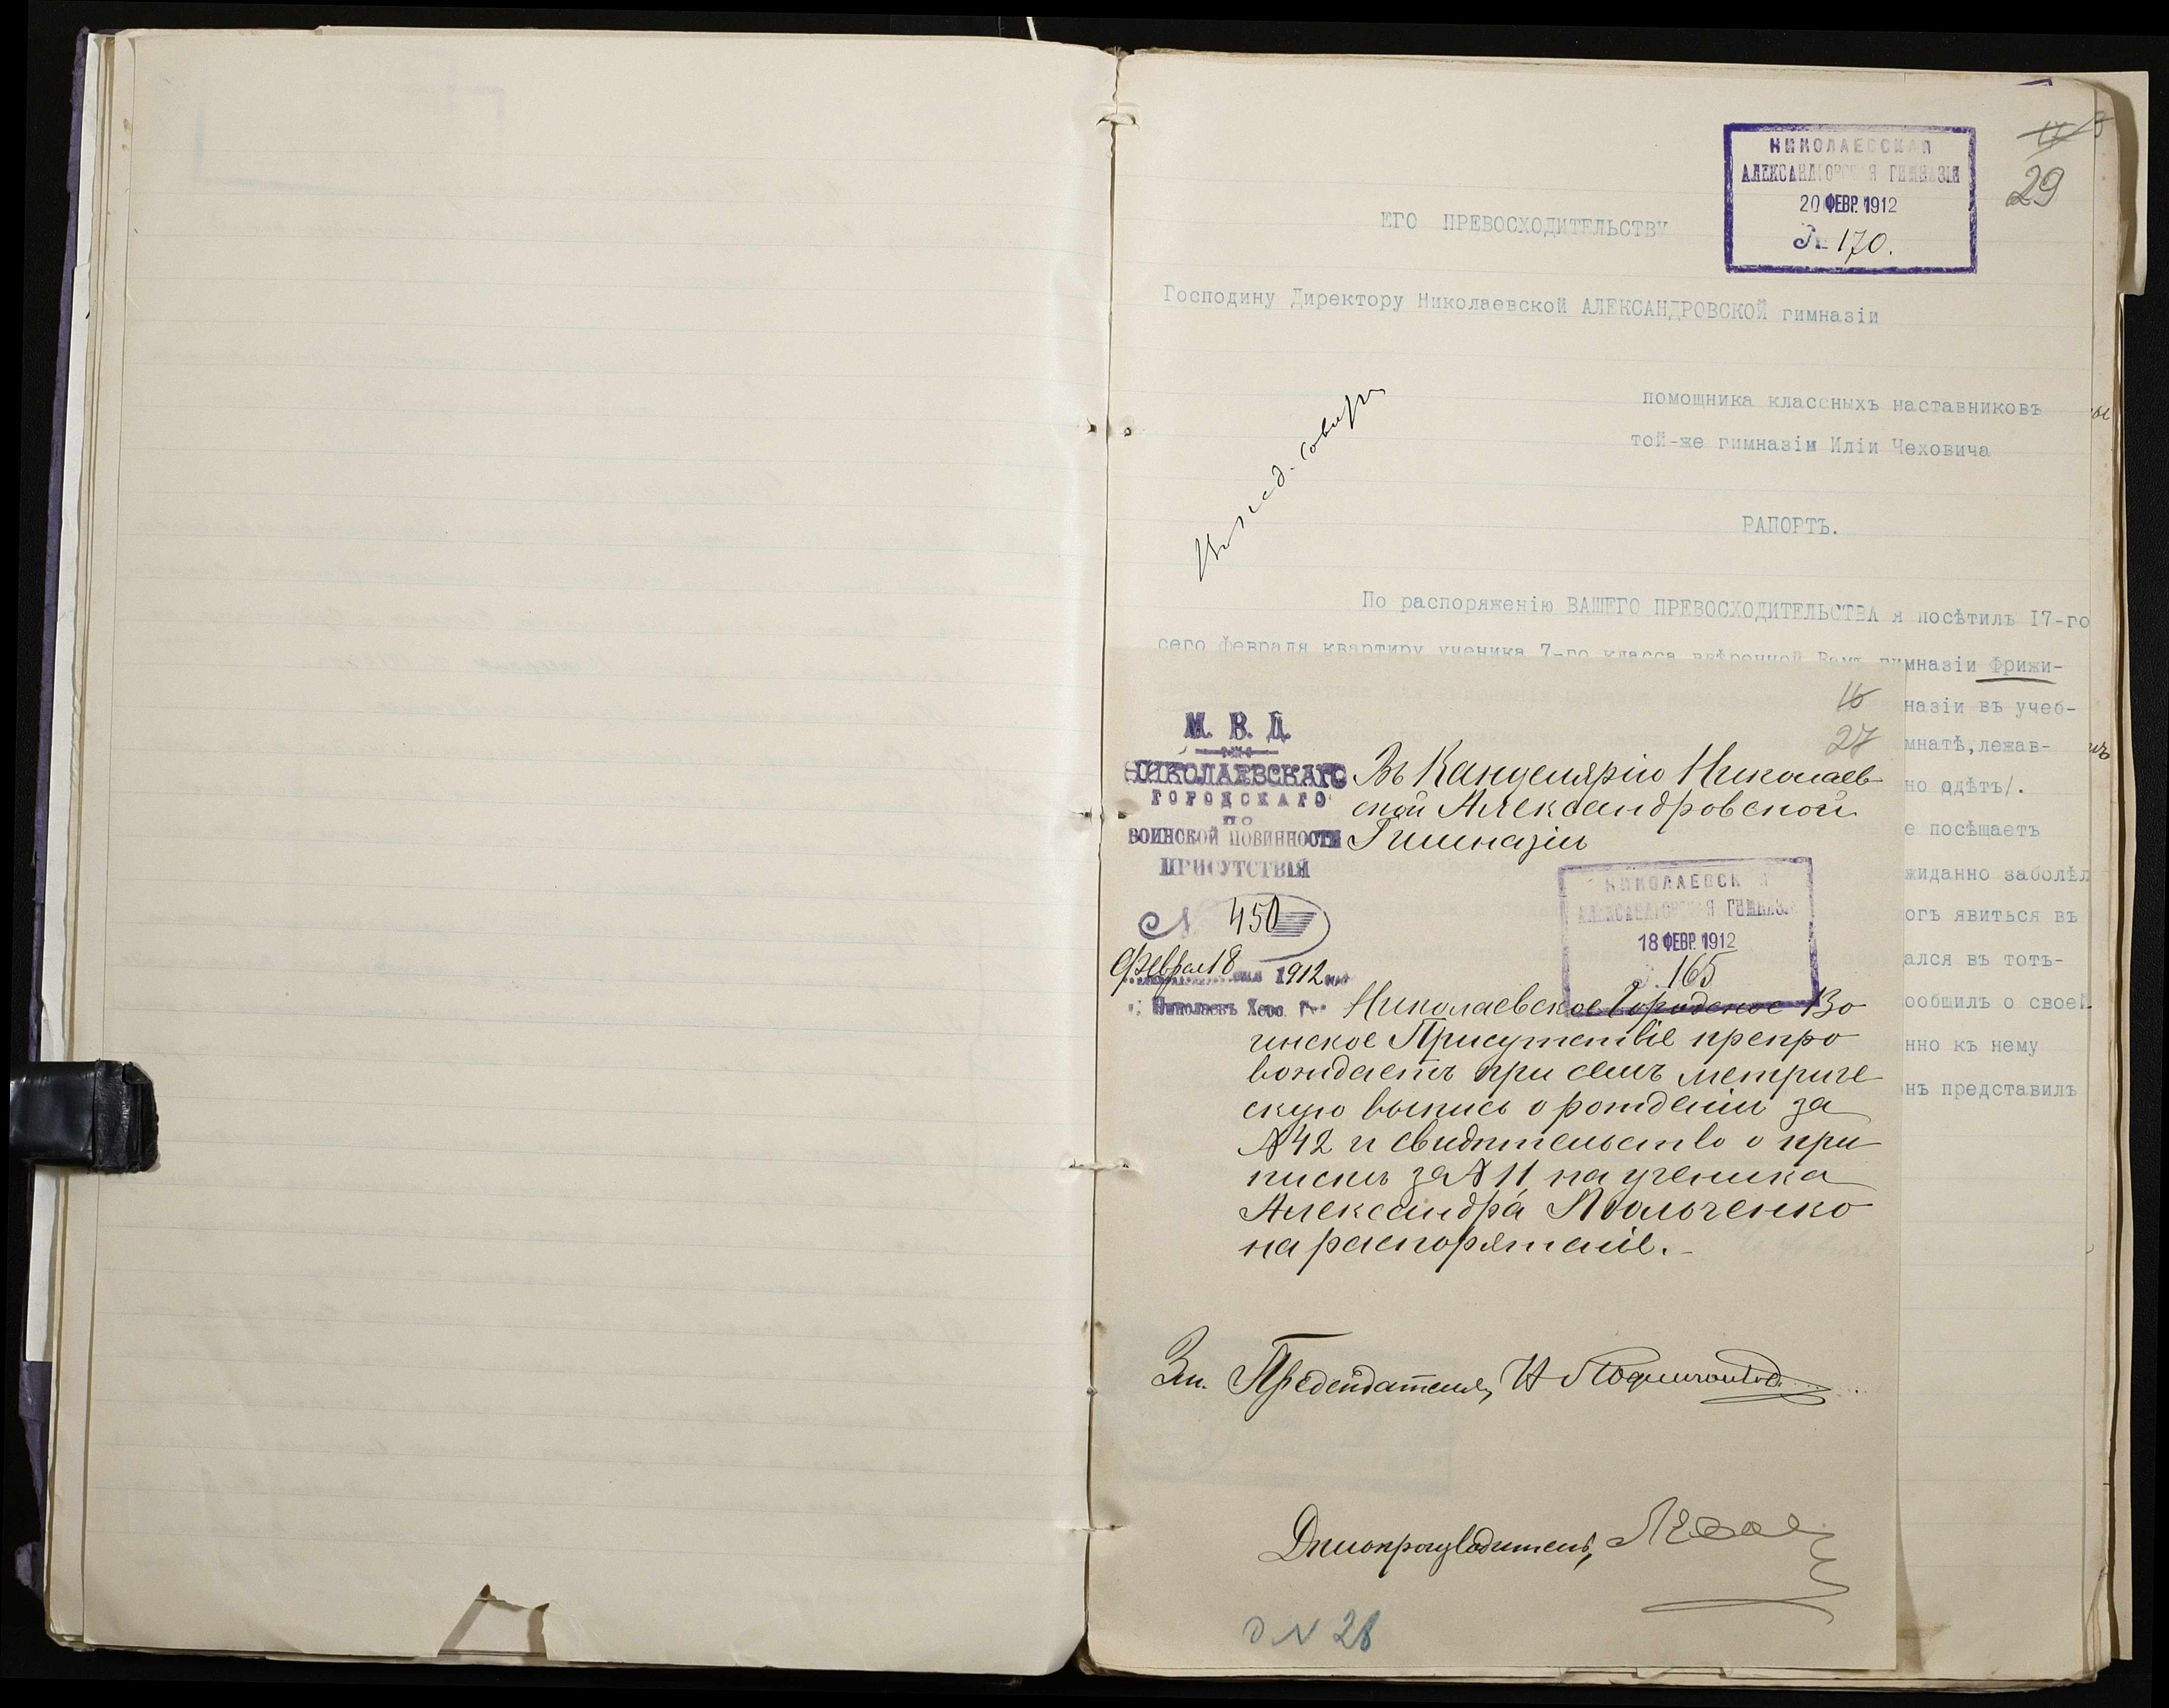 НИКОЛАЕВСКАЯ
АЛЕКСАНДРОВСКАЯ ГИМНАЗІЯ
20 ФЕВР. 1912
№ 170.
29
ЕГО ПРЕВОСХОДИТЕЛЬСТВУ
Господину Директору Николаевской АЛЕКСАНДРОВСКОЙ гимназіи
помощника классныхъ наставниковъ
той-же гимназіи Иліи Чеховича
РАПОРТЪ.
По распоряженію ВАШЕГО ПРЕВОСХОДИТЕЛЬСТВА я посѣтилъ 17-го
сего февраля квартиру ученика 7-го класса ввѣренной Вамъ гимназіи Фрижи-
назіи въ учеб-
мнатѣ,лежав-
но одѣтъ/.
е посѣщаетъ
жиданно заболѣл
огъ явиться въ
ался въ тотъ-
ообщилъ о своей
нно къ нему
нъ представилъ
16
27
М. В. Д.
НИКОЛАЕВСКАГО
ГОРОДСКАГО
ПО
ВОИНСКОЙ ПОВИННОСТИ
ПРИСУТСТВІЯ
№ 450
Феврал 18 дня 1912 год
г. Николаевъ Херс. Г.
Въ Канцелярію Николаев
ской Александровской
Гимназіи
НИКОЛАЕВСКАЯ
АЛЕКСАНДРОВСКАЯ ГИМНАЗІЯ
18 ФЕВР. 1912
165
Николаевское Городское Во
инское Присутствіе препро
вождаетъ при семъ метриче
скую выпись о рожденіи за
№ 42 и свидѣтельство о при
пискѣ за № 11, на ученика
Александра
на распоряженіе.
За. Предсѣдателя,
Дѣлопроизводитель,
№ 28